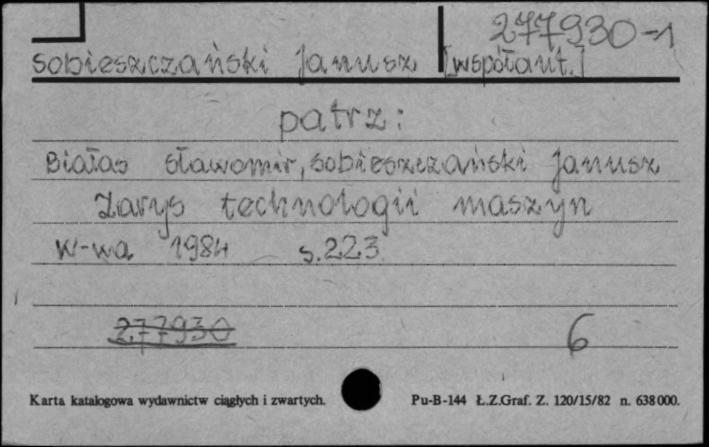 277930-1
Sobieszczański Janusz [współaut.]
patrz:
Białas Sławomir, Sobieszczański Janusz
Zarys technologii maszyn
W-wa 1984 s.223
277930 6
Karta katalogowa wydawnictw ciągłych i zwartych. Pu-B-144 Ł.Z.Graf. Z. 120/15/82 n. 638000.